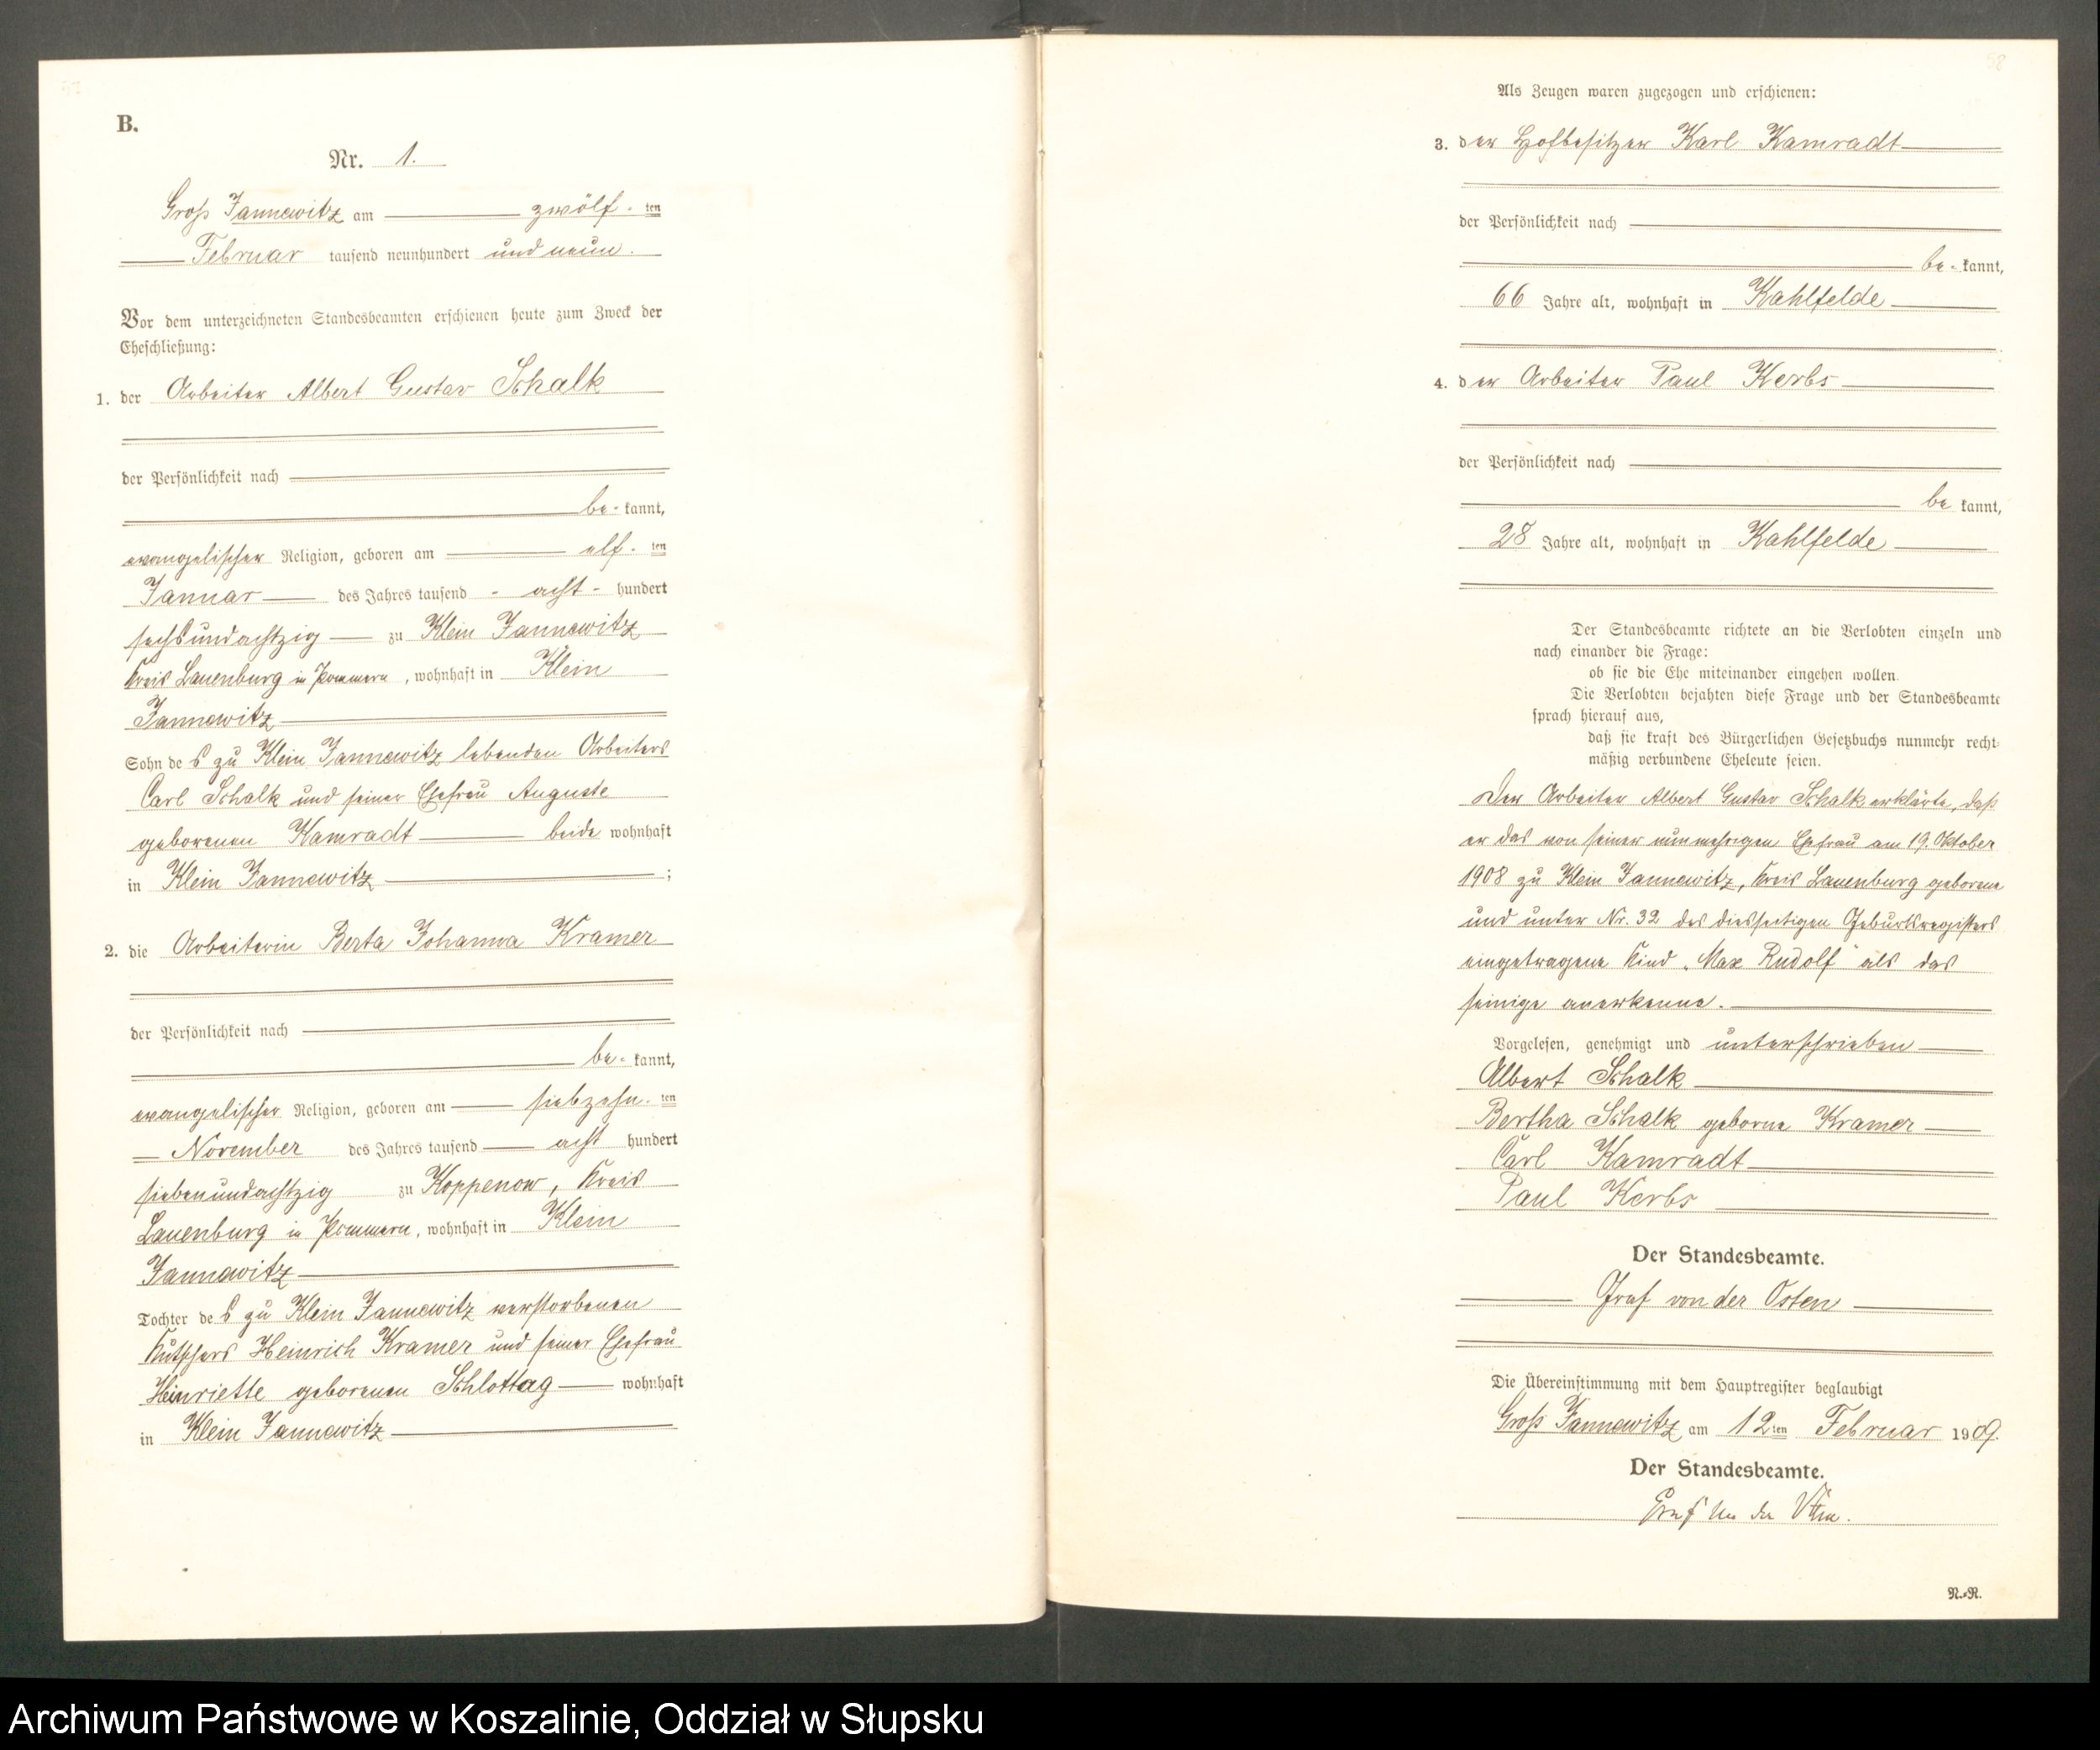 B.
Nr. 1.
Groß Jannewitz am zwölf-ten
Februar tausend neunhundert und neun.
Vor dem unterzeichneten Standesbeamten erschienen heute zum Zweck der
Eheschließung:
1. der Arbeiter Albert Gustav Schalk
der Persönlichkeit nach
be-kannt,
evangelischer Religion, geboren am elf-ten
Januar des Jahres tausend - acht - hundert
sechsundachtzig zu Klein Jannewitz
Kreis Lauenburg in Pommern, wohnhaft in Klein
Jannewitz
Sohn des zu Klein Jannewitz lebenden Arbeiters
Carl Schalk und seiner Ehefrau Auguste
geborenen Kamradt beide wohnhaft
in Klein Jannewitz ;
2. die Arbeiterin Berta Johanna Kramer
der Persönlichkeit nach
be-kannt,
evangelischer Religion, geboren am siebzehn-ten
November des Jahres tausend acht hundert
siebenundachtzig zu Koppenow, Kreis
Lauenburg in Pommern, wohnhaft in Klein
Jannewitz
Tochter des zu Klein Jannewitz verstorbenen
Kutschers Heinrich Kramer und seiner Ehefrau
Henriette geborenen Schlottag wohnhaft
in Klein Jannewitz
58
Als Zeugen waren zugezogen und erschienen:
3. der Hofbesitzer Karl Kamradt
der Persönlichkeit nach
be-kannt,
66 Jahre alt, wohnhaft in Kahlfelde
4. der Arbeiter Paul Kerbs
der Persönlichkeit nach
be kannt,
28 Jahre alt, wohnhaft in Kahlfelde
Der Standesbeamte richtete an die Verlobten einzeln und
nach einander die Frage:
ob sie die Ehe miteinander eingehen wollen.
Die Verlobten bejahten diese Frage und der Standesbeamte
sprach hierauf aus,
daß sie kraft des Bürgerlichen Gesetzbuchs nunmehr recht-
mäßig verbundene Eheleute seien.
Der Arbeiter Albert Gustav Schalk erklärte, daß
er das von seiner nunmehrigen Ehefrau am 19. Oktober
1908 zu Klein Jannewitz, Kreis Lauenburg geborene
und unter Nr. 32 des diesseitigen Geburtsregisters
eingetragene Kind „Max Rudolf" als das
seinige anerkenne.
Vorgelesen, genehmigt und unterschrieben
Albert Schalk
Bertha Schalk geborne Kramer
Carl Kamradt
Paul Kerbs
Der Standesbeamte.
Graf von der Osten
Die Übereinstimmung mit dem Hauptregister beglaubigt
Groß Jannewitz am 12ten Februar 1909.
Der Standesbeamte.
Graf von der Osten.
N.-R.
Archiwum Państwowe w Koszalinie, Oddział w Słupsku